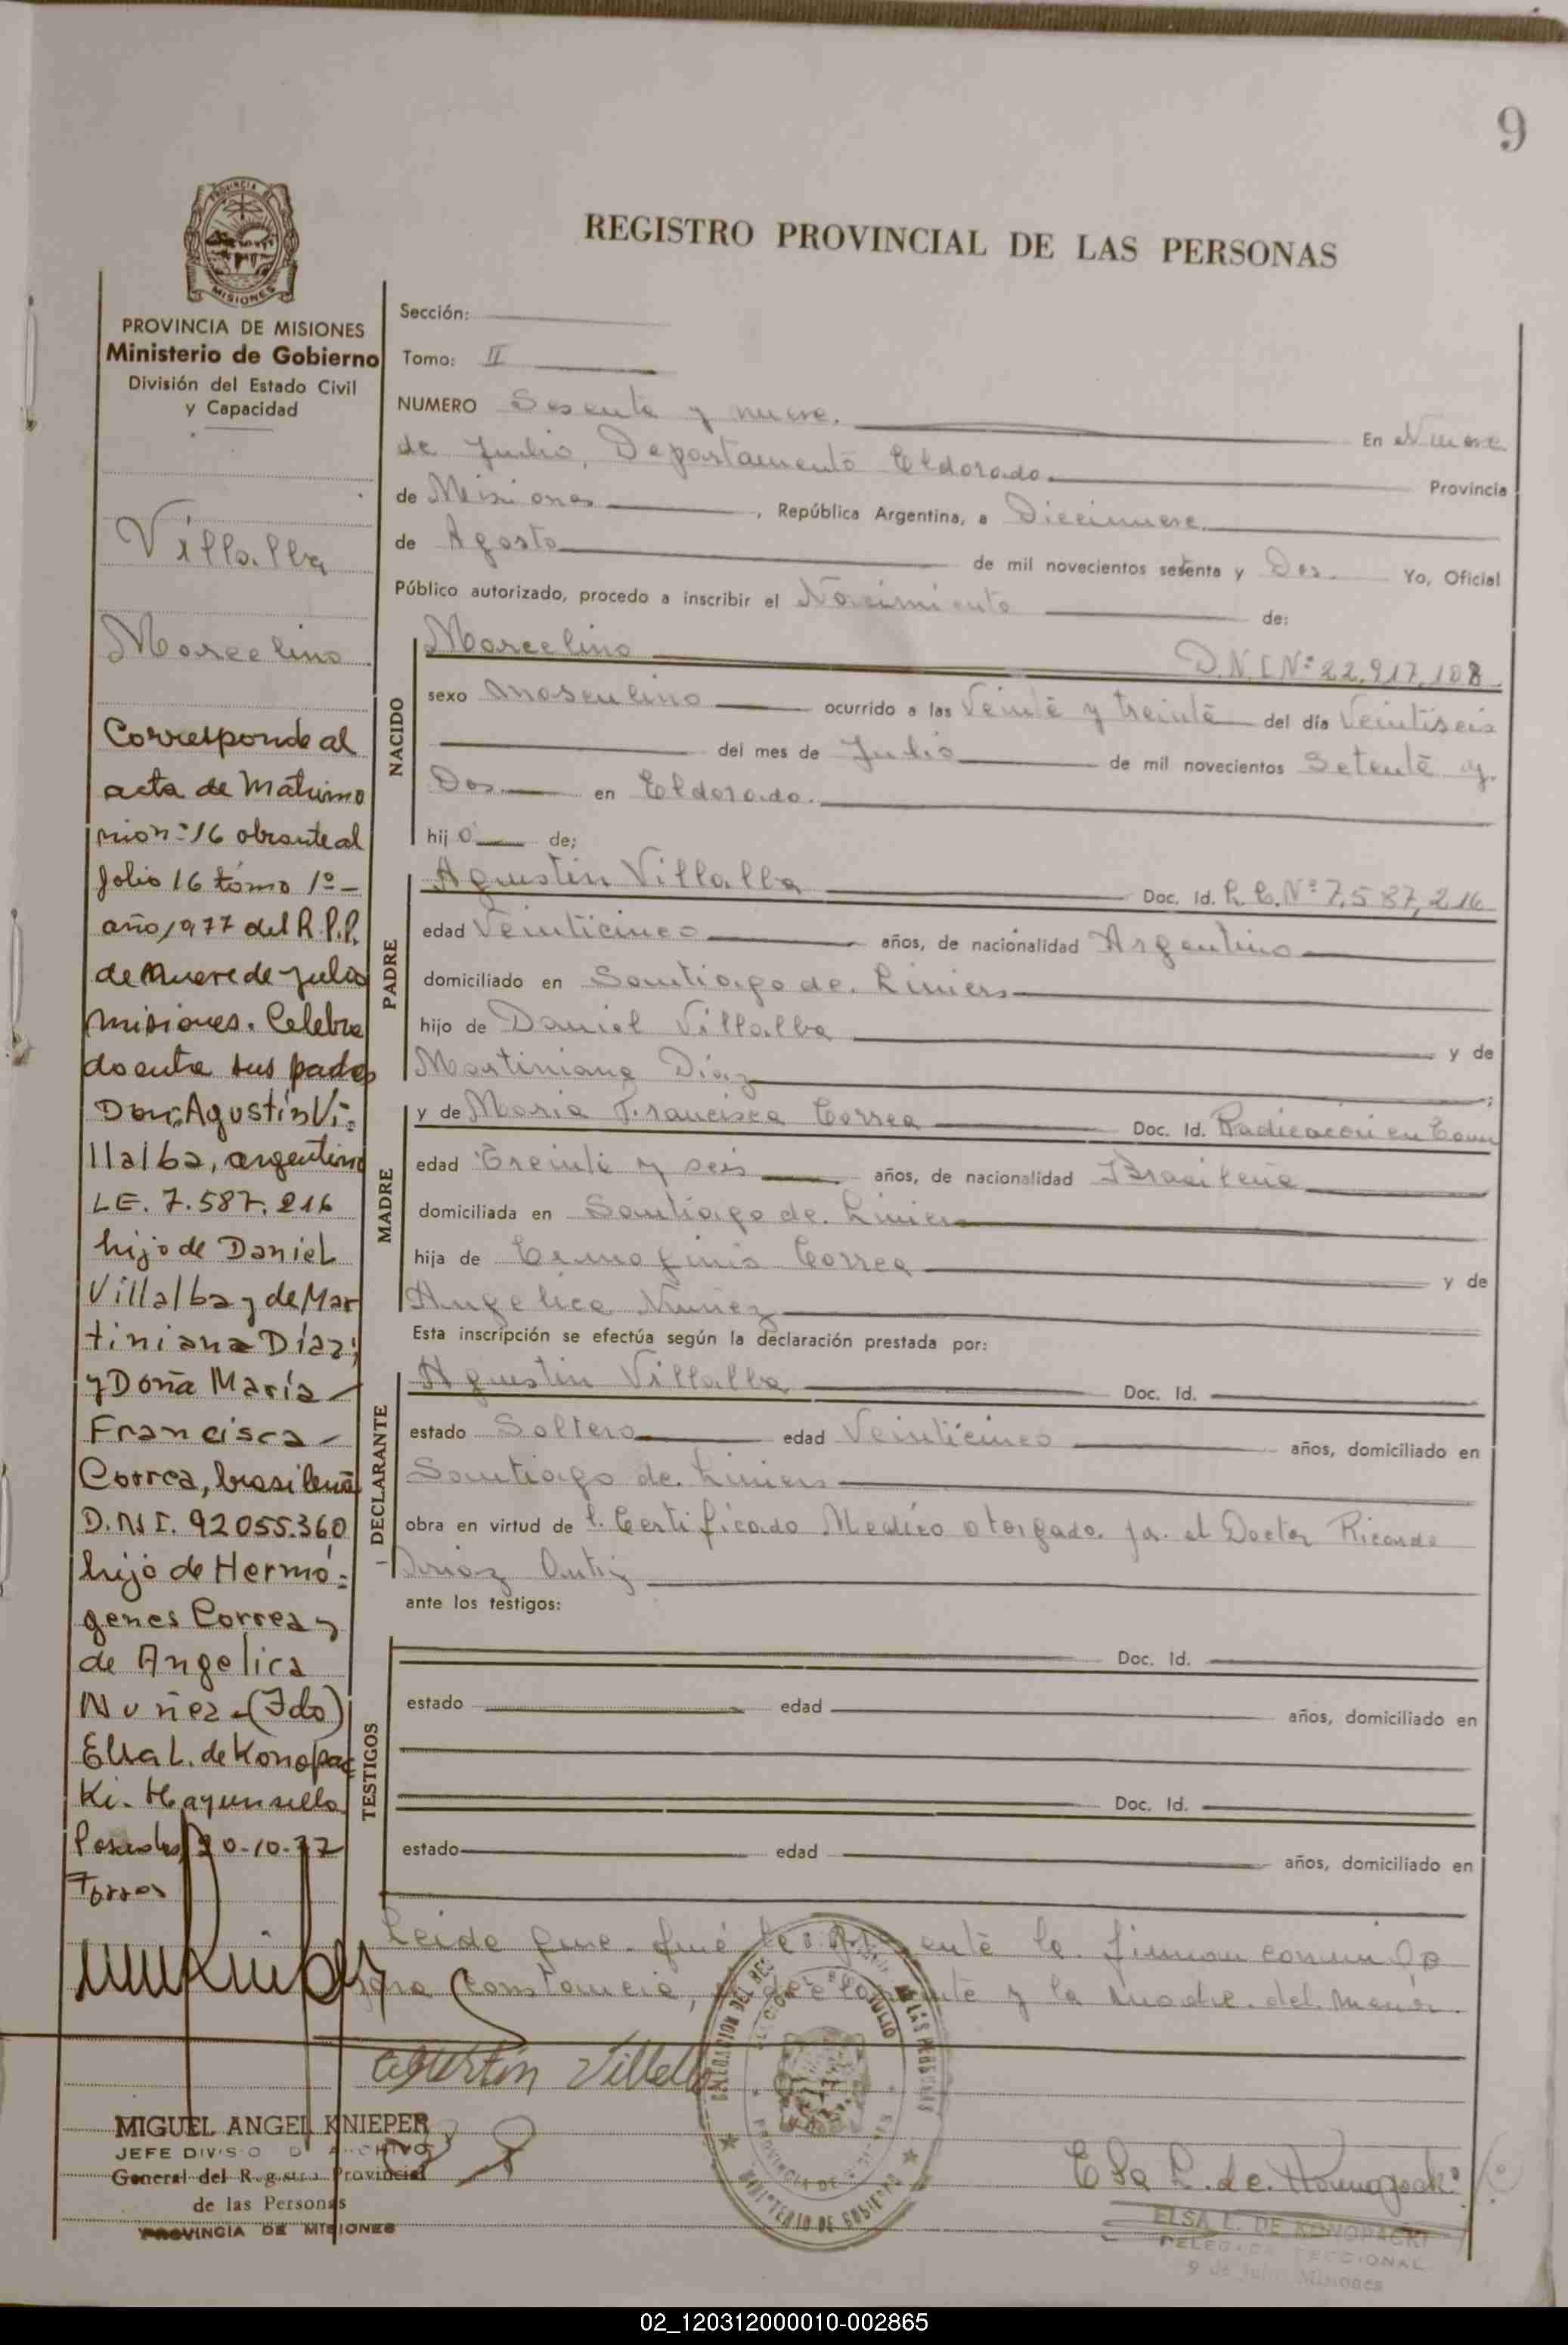 9
REGISTRO PROVINCIAL DE LAS PERSONAS
PROVINCIA DE MISIONES
Ministerio de Gobierno
División del Estado Civil
y Capacidad
Villalba
Marcelino
Corresponde al
acta de Matrimo
nio nº 16 obrante al
folio 16 tomo 1º -
año 1977 del R.P.P.
de Nueve de Julio
Misiones. Celebra
do entre sus padres
Don: Agustín Vi=
llalba, argentino
LE. 7.587.216
hijo de Daniel
Villalba y de Mar
tiniana Díaz;
y Doña María -
Francisca -
Correa, brasileña
D.N.I. 92055.360
hija de Hermó=
genes Correa y
de Angelica
Nuñez - (Fdo)
Elsa L. de Konopac
Ki. Hay un sello
Posadas, 20-10-77
MIGUEL ANGEL KNIEPER
JEFE DIVISIO D ARCHIVO
General del Registro Provincial
de las Personas
PROVINCIA DE MISIONES
Sección:
Tomo: II
NUMERO Sesenta y nueve. En Nueve
de Julio, Departamento Eldorado. Provincia
de Misiones, República Argentina, a Diecinueve
de Agosto de mil novecientos setenta y Dos. Yo, Oficial
Público autorizado, procedo a inscribir el Nacimiento de:
NACIDO
Marcelino D.N.I Nº 22.917.108
sexo Masculino ocurrido a las Veinte y treinta del día Veintiseis
del mes de Julio de mil novecientos Setenta y
Dos. en Eldorado.
hij o de;
PADRE
Agustin Villalba Doc. Id. L.E. Nº 7.587.216
edad Veinticinco años, de nacionalidad Argentino
domiciliado en Santiago de. Liniers
hijo de Daniel Villalba y de
Martiniana Diaz ;
MADRE
y de Maria Francisca Correa Doc. Id. Radicacion en
edad Treinta y seis años, de nacionalidad Brasileña
domiciliada en Santiago de. Liniers
hija de Correa y de
Angelica Nuñez
Esta inscripción se efectúa según la declaración prestada por:
DECLARANTE
Agustin Villalba Doc. Id.
estado Soltero edad Veinticinco años, domiciliado en
Santiago de. Liniers
obra en virtud de l. Certificado Medico otorgado. por el Doctor Ricardo
ante los testigos:
TESTIGOS
Doc. Id.
estado edad años, domiciliado en
Doc. Id.
estado edad años, domiciliado en
Leida que. fué la presente la. firman conmigo
para constancia, el declarante y la madre. del menor.
Agustin Villalba
Elsa L. de. Konopacki
ELSA L. DE KONOPACKI
DELEGADA SECCIONAL
9 de Julio Misiones
02_120312000010-002865